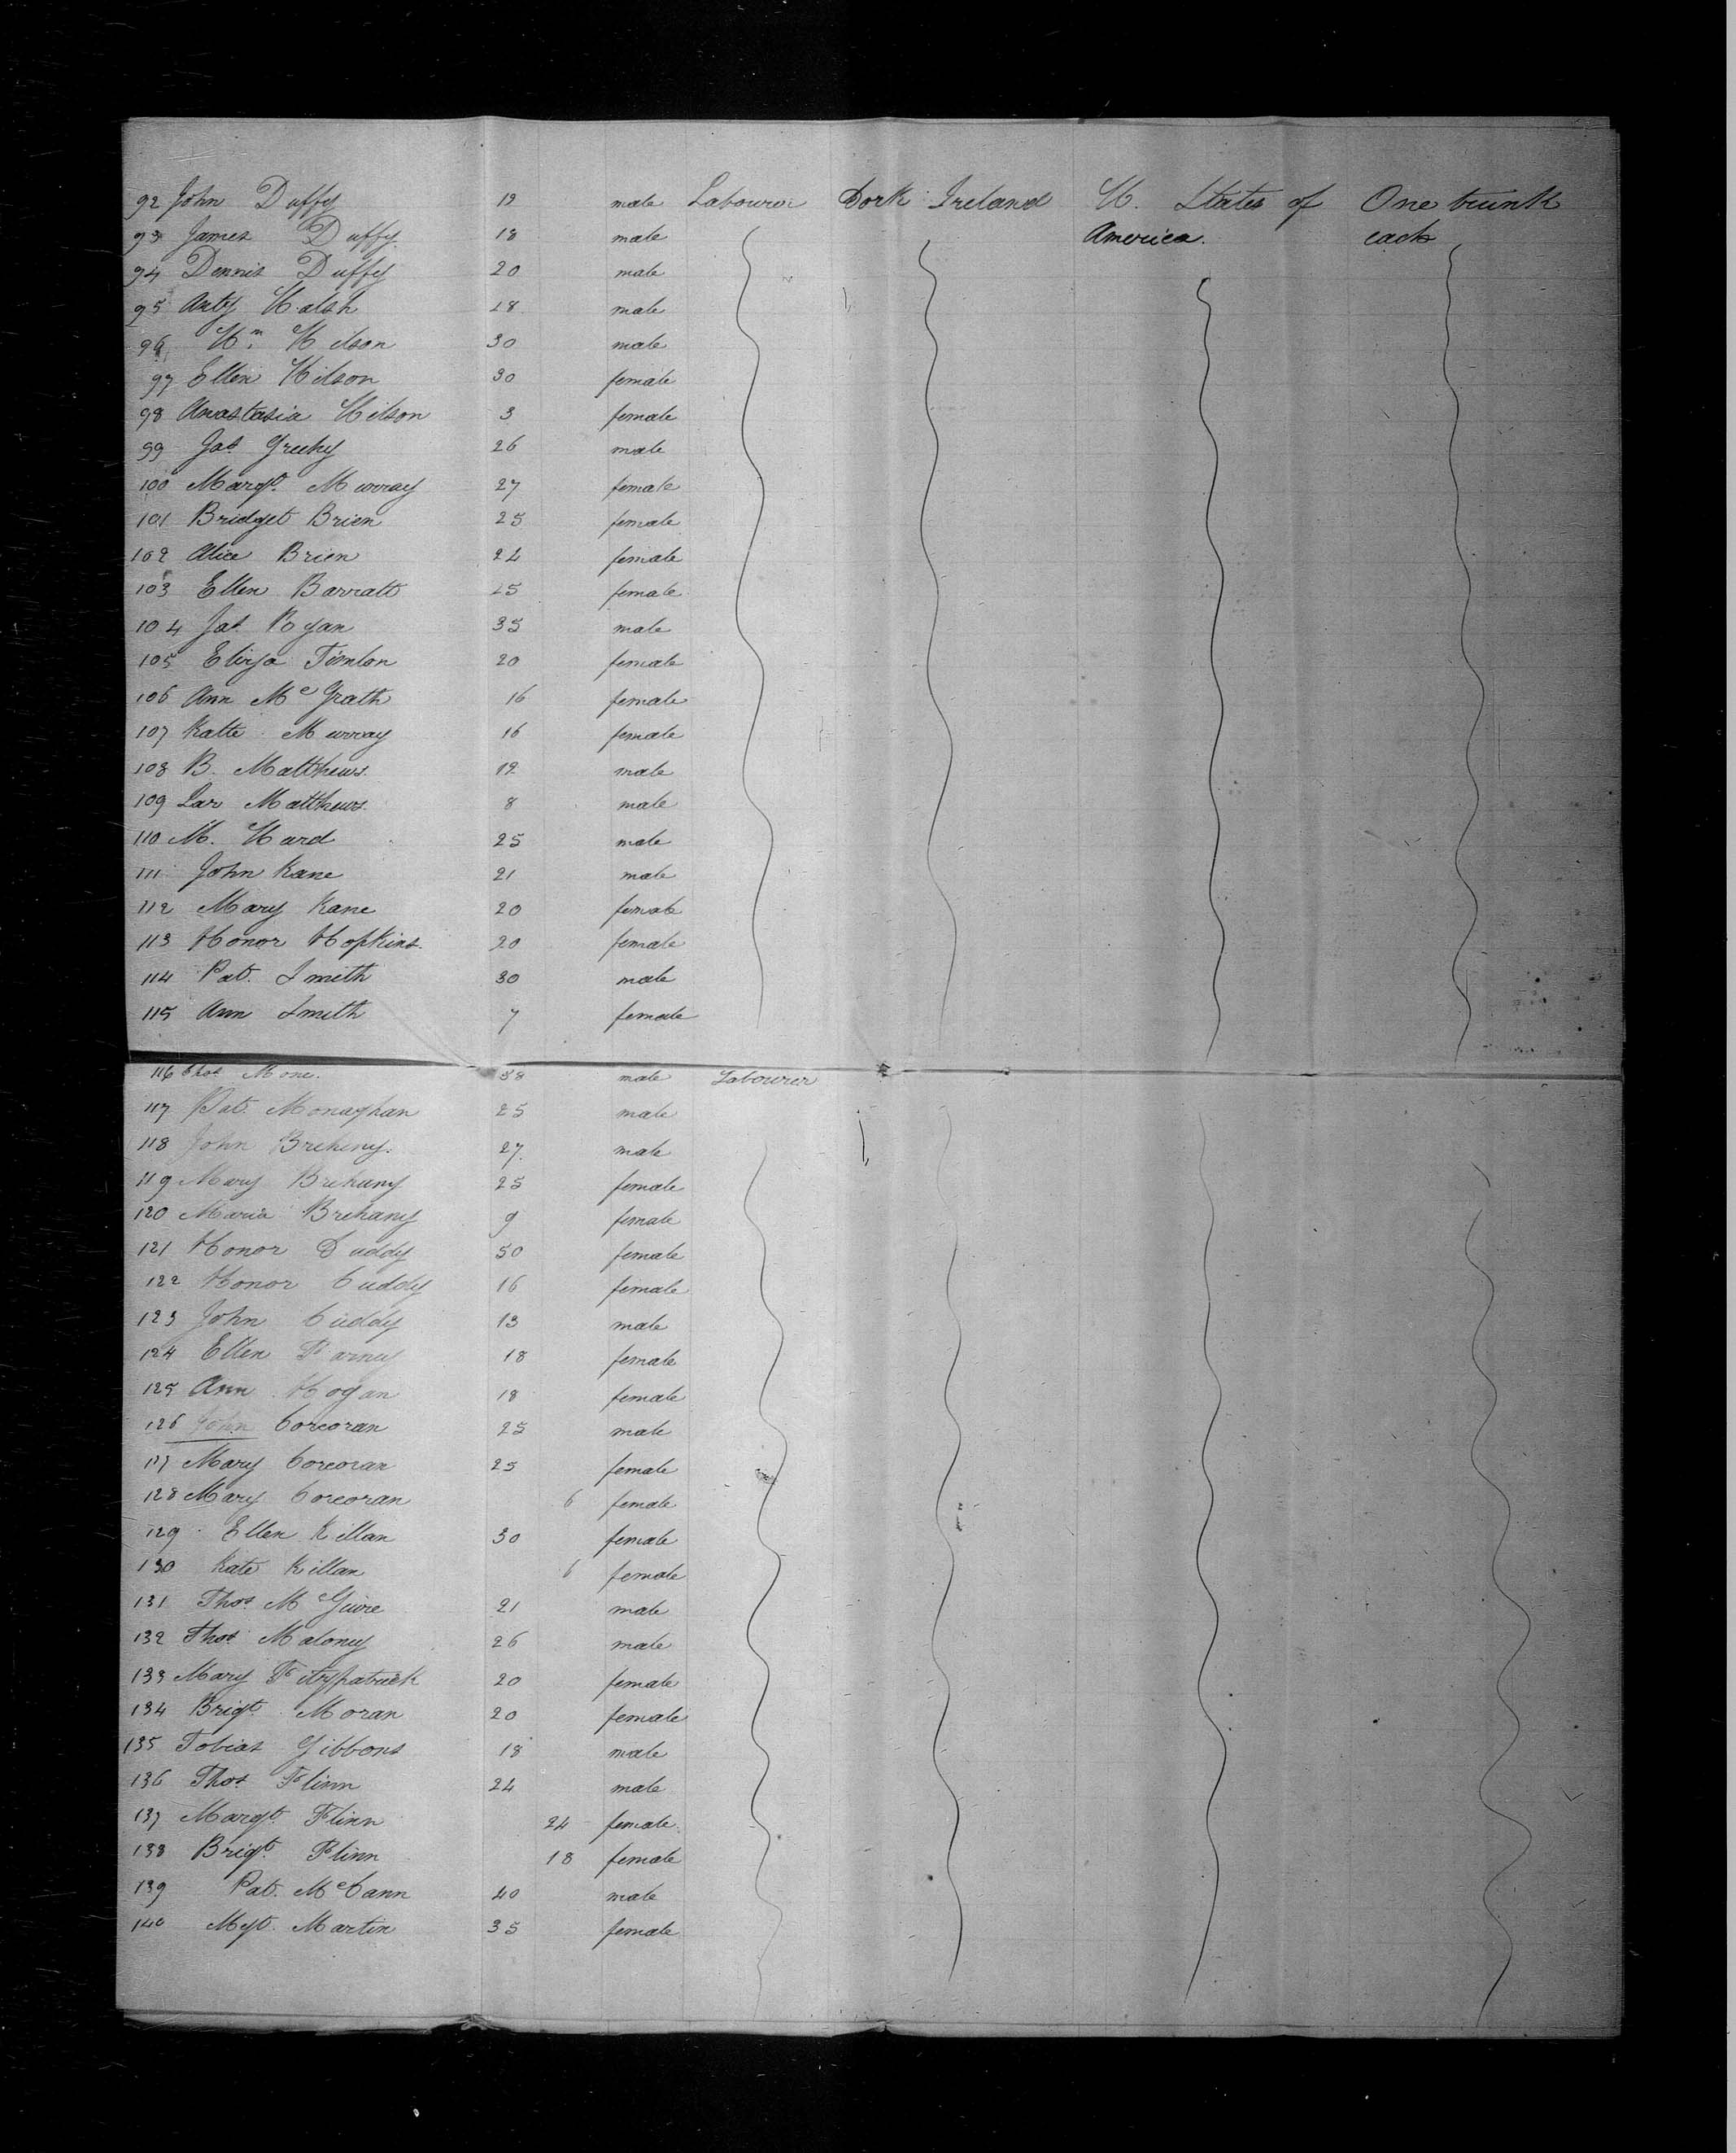 92 John Duffy 19 male Labourer Cork Ireland U. States of One trunk
93 James Duffy 18 male America. each
94 Dennis Duffy 20 male
95 Anty Walsh 18 male
96 Wm. Wilson 30 male
97 Ellen Wilson 30 female
98 Anastasia Wilson 3 female
99 Jas Greehy 26 male
100 Margt. Murray 27 female
101 Bridget Brien 25 female
102 Alice Brien 24 female
103 Ellen Barratt 25 female
104 Jas Ryan 35 male
105 Eliza Timlon 20 female
106 Ann McGrath 16 female
107 Katte Murray 16 female
108 B. Matthews. 12 male
109 Lar Matthews. 8 male
110 M. Ward 25 male
111 John Kane 21 male
112 Mary Kane 20 female
113 Honor Hopkins. 20 female
114 Pat. Smith 30 male
115 Ann Smith 7 female
116 Thos Mone. 38 male Labourer
117 Pat. Monaghan 25 male
118 John Breheny. 27. male
119 Mary Brehuny 25 female
120 Maria Brehany 9 female
121 Honor Cuddy 50 female
122 Honor Cuddy 16 female
123 John Cuddy 13 male
124 Ellen Farney 18 female
125 Ann Hogan 18 female
126 John Corcoran 25 male
127 Mary Corcoran 25 female
128 Mary Corcoran 6 female
129 Ellen Killan 30 female
130 Kate Killan 6 female
131 Thos. McGuire 21 male
132 Thos Malony 26 male
133 Mary Fitzpatrick 20 female
134 Brigt. Moran 20 female
135 Tobias Gibbons 18 male
136 Thos Flinn 24 male
137 Margt. Flinn 24 female
138 Brigt. Flinn 18 female
139 Pat. McCann 40 male
140 Mgt. Martin 35 female